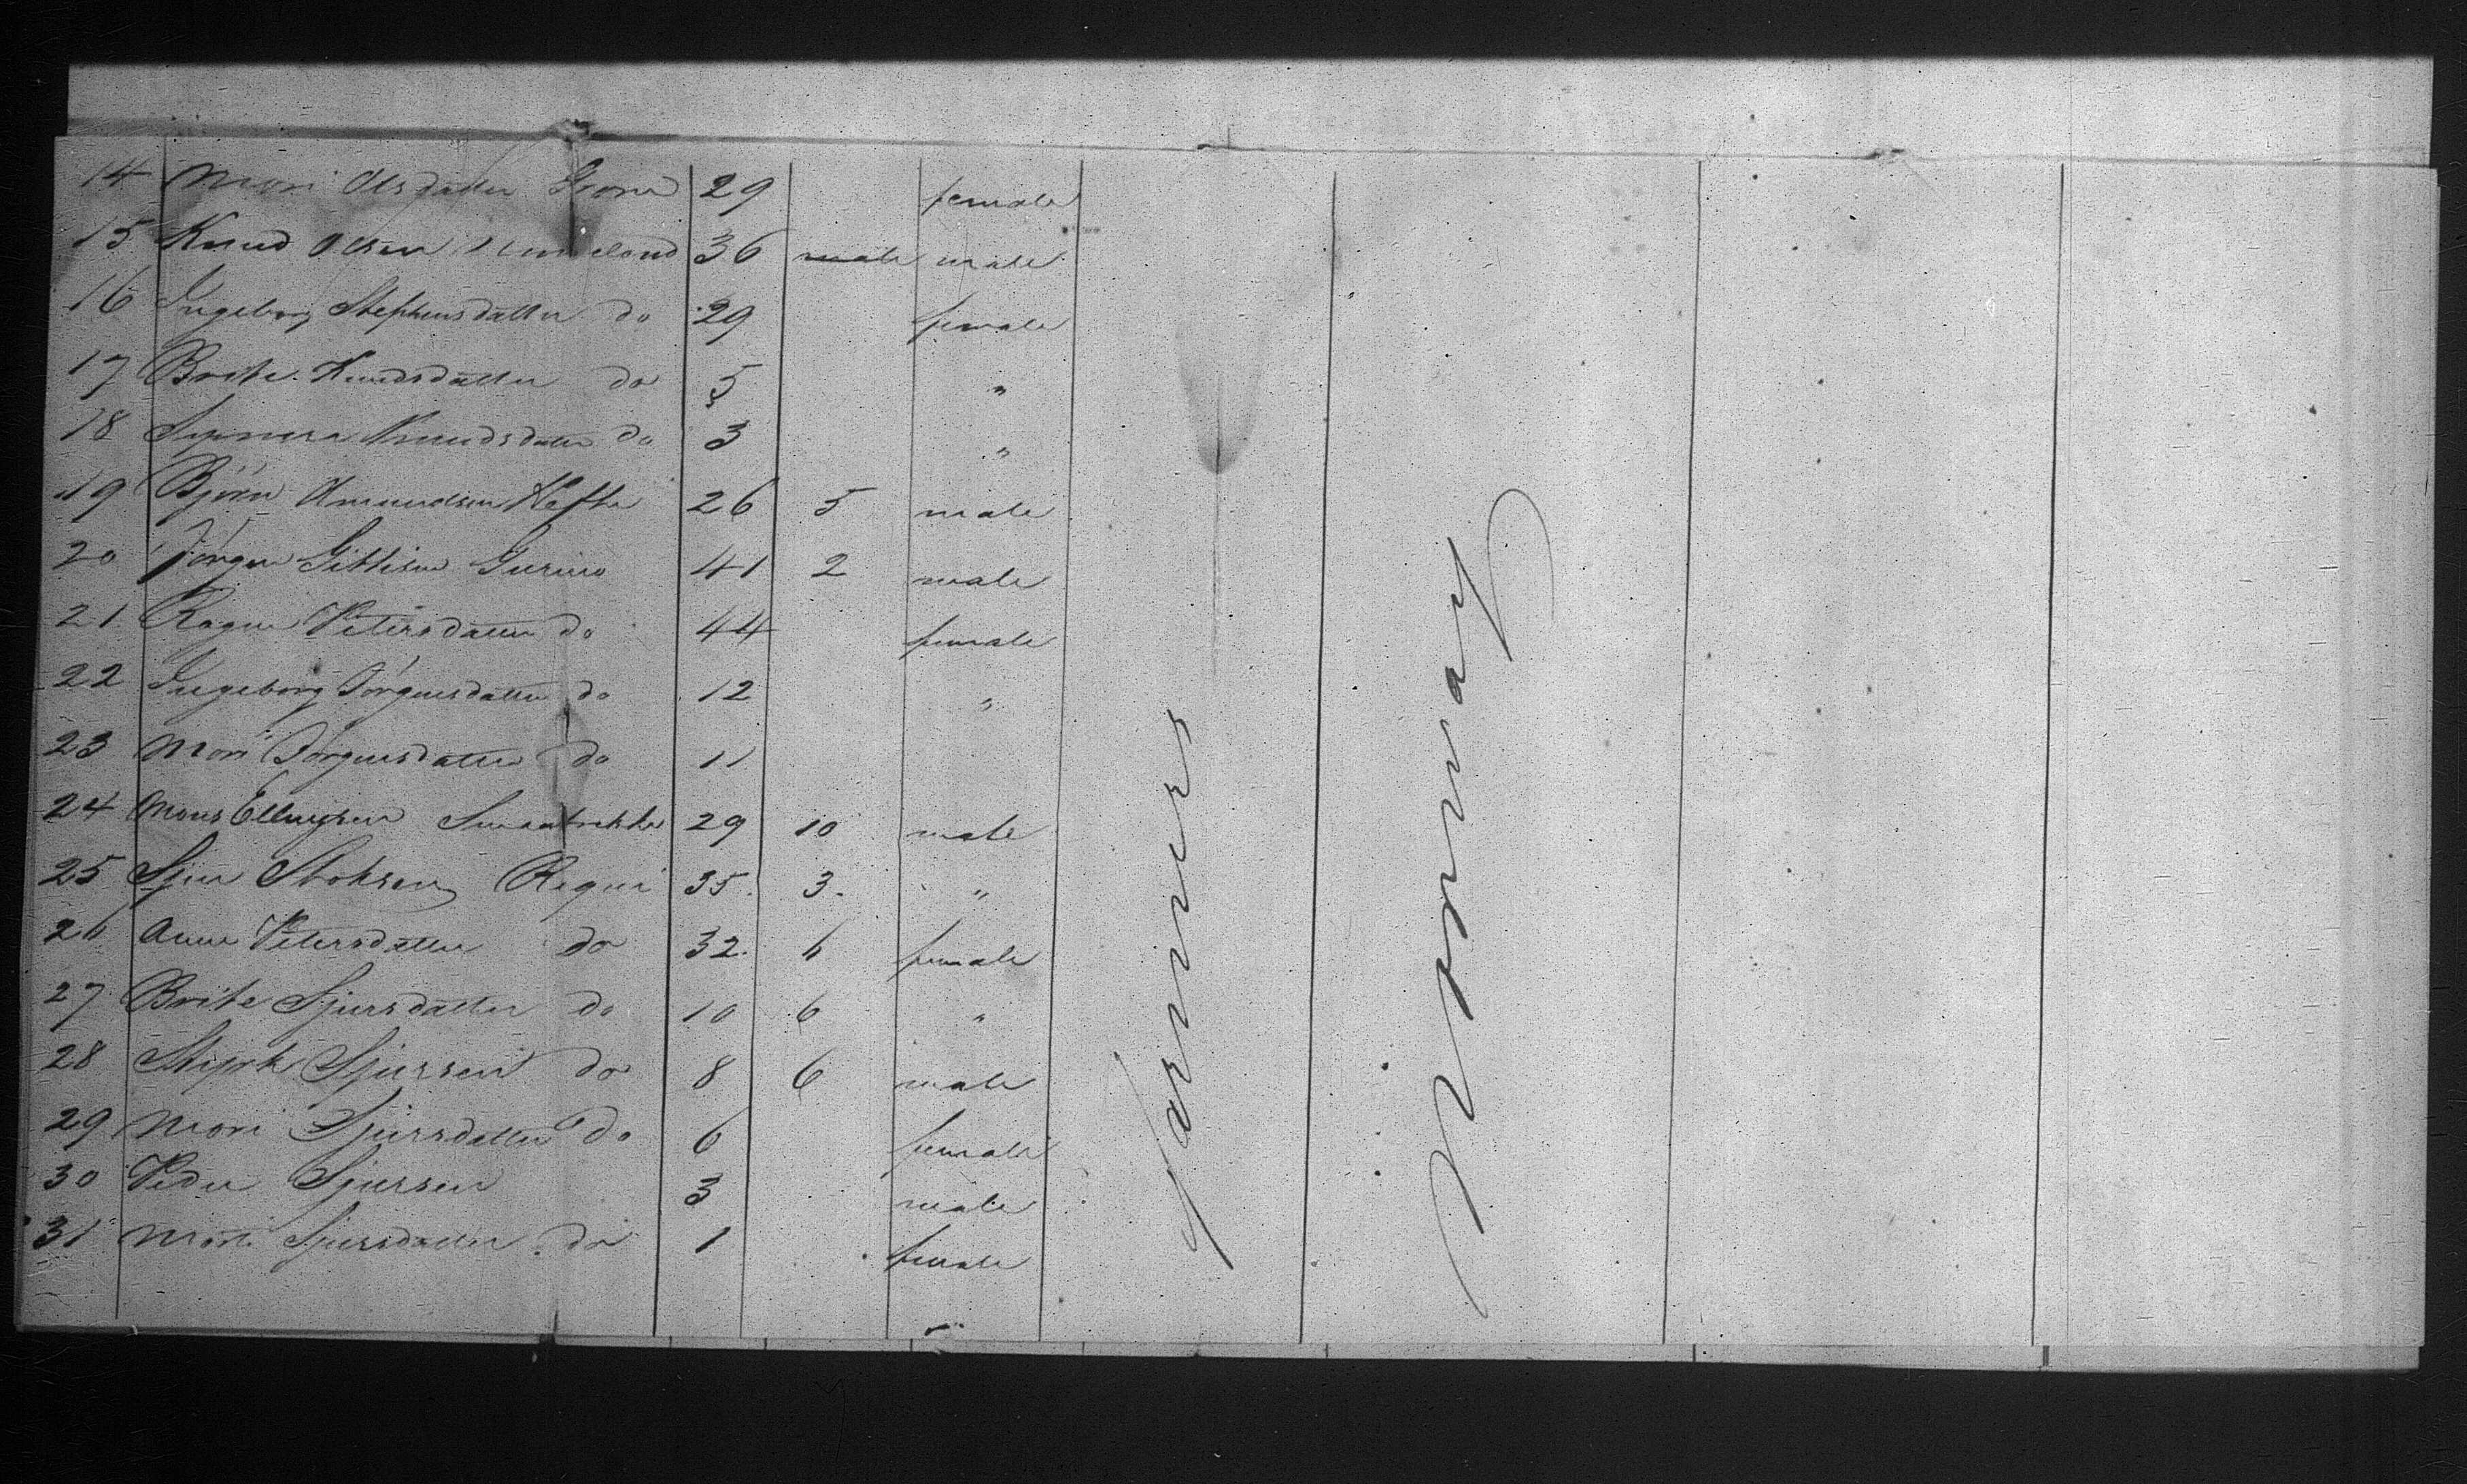 14 Mari Olsdatter 29 female
15 Knud Olsen 36 male male
16 Ingeborg Stephensdatter do 29 female
17 Brite Knudsdatter do 5 "
18 Knudsdatter do 3 "
19 Björn Amundsen Hefte 26 5 male
20 Jörgen Gittlesen 41 2 male
21 Ragne Petersdatter do 44 female
22 Ingeborg Jörgensdatter do 12 "
23 Mari Jörgensdatter do 11
24 Mons Ellingsen 29 10 male
25 Sjur 35. 3. "
26 Anne Petersdatter do 32. 6 female
27 Brite Sjursdatter do 10 6 "
28 Sjursen do 8 6 male
29 Mari Sjursdatter do 6 female
30 Peder Sjursen 3 male
31 Sjursdatter do 1 female
farmers
Norway